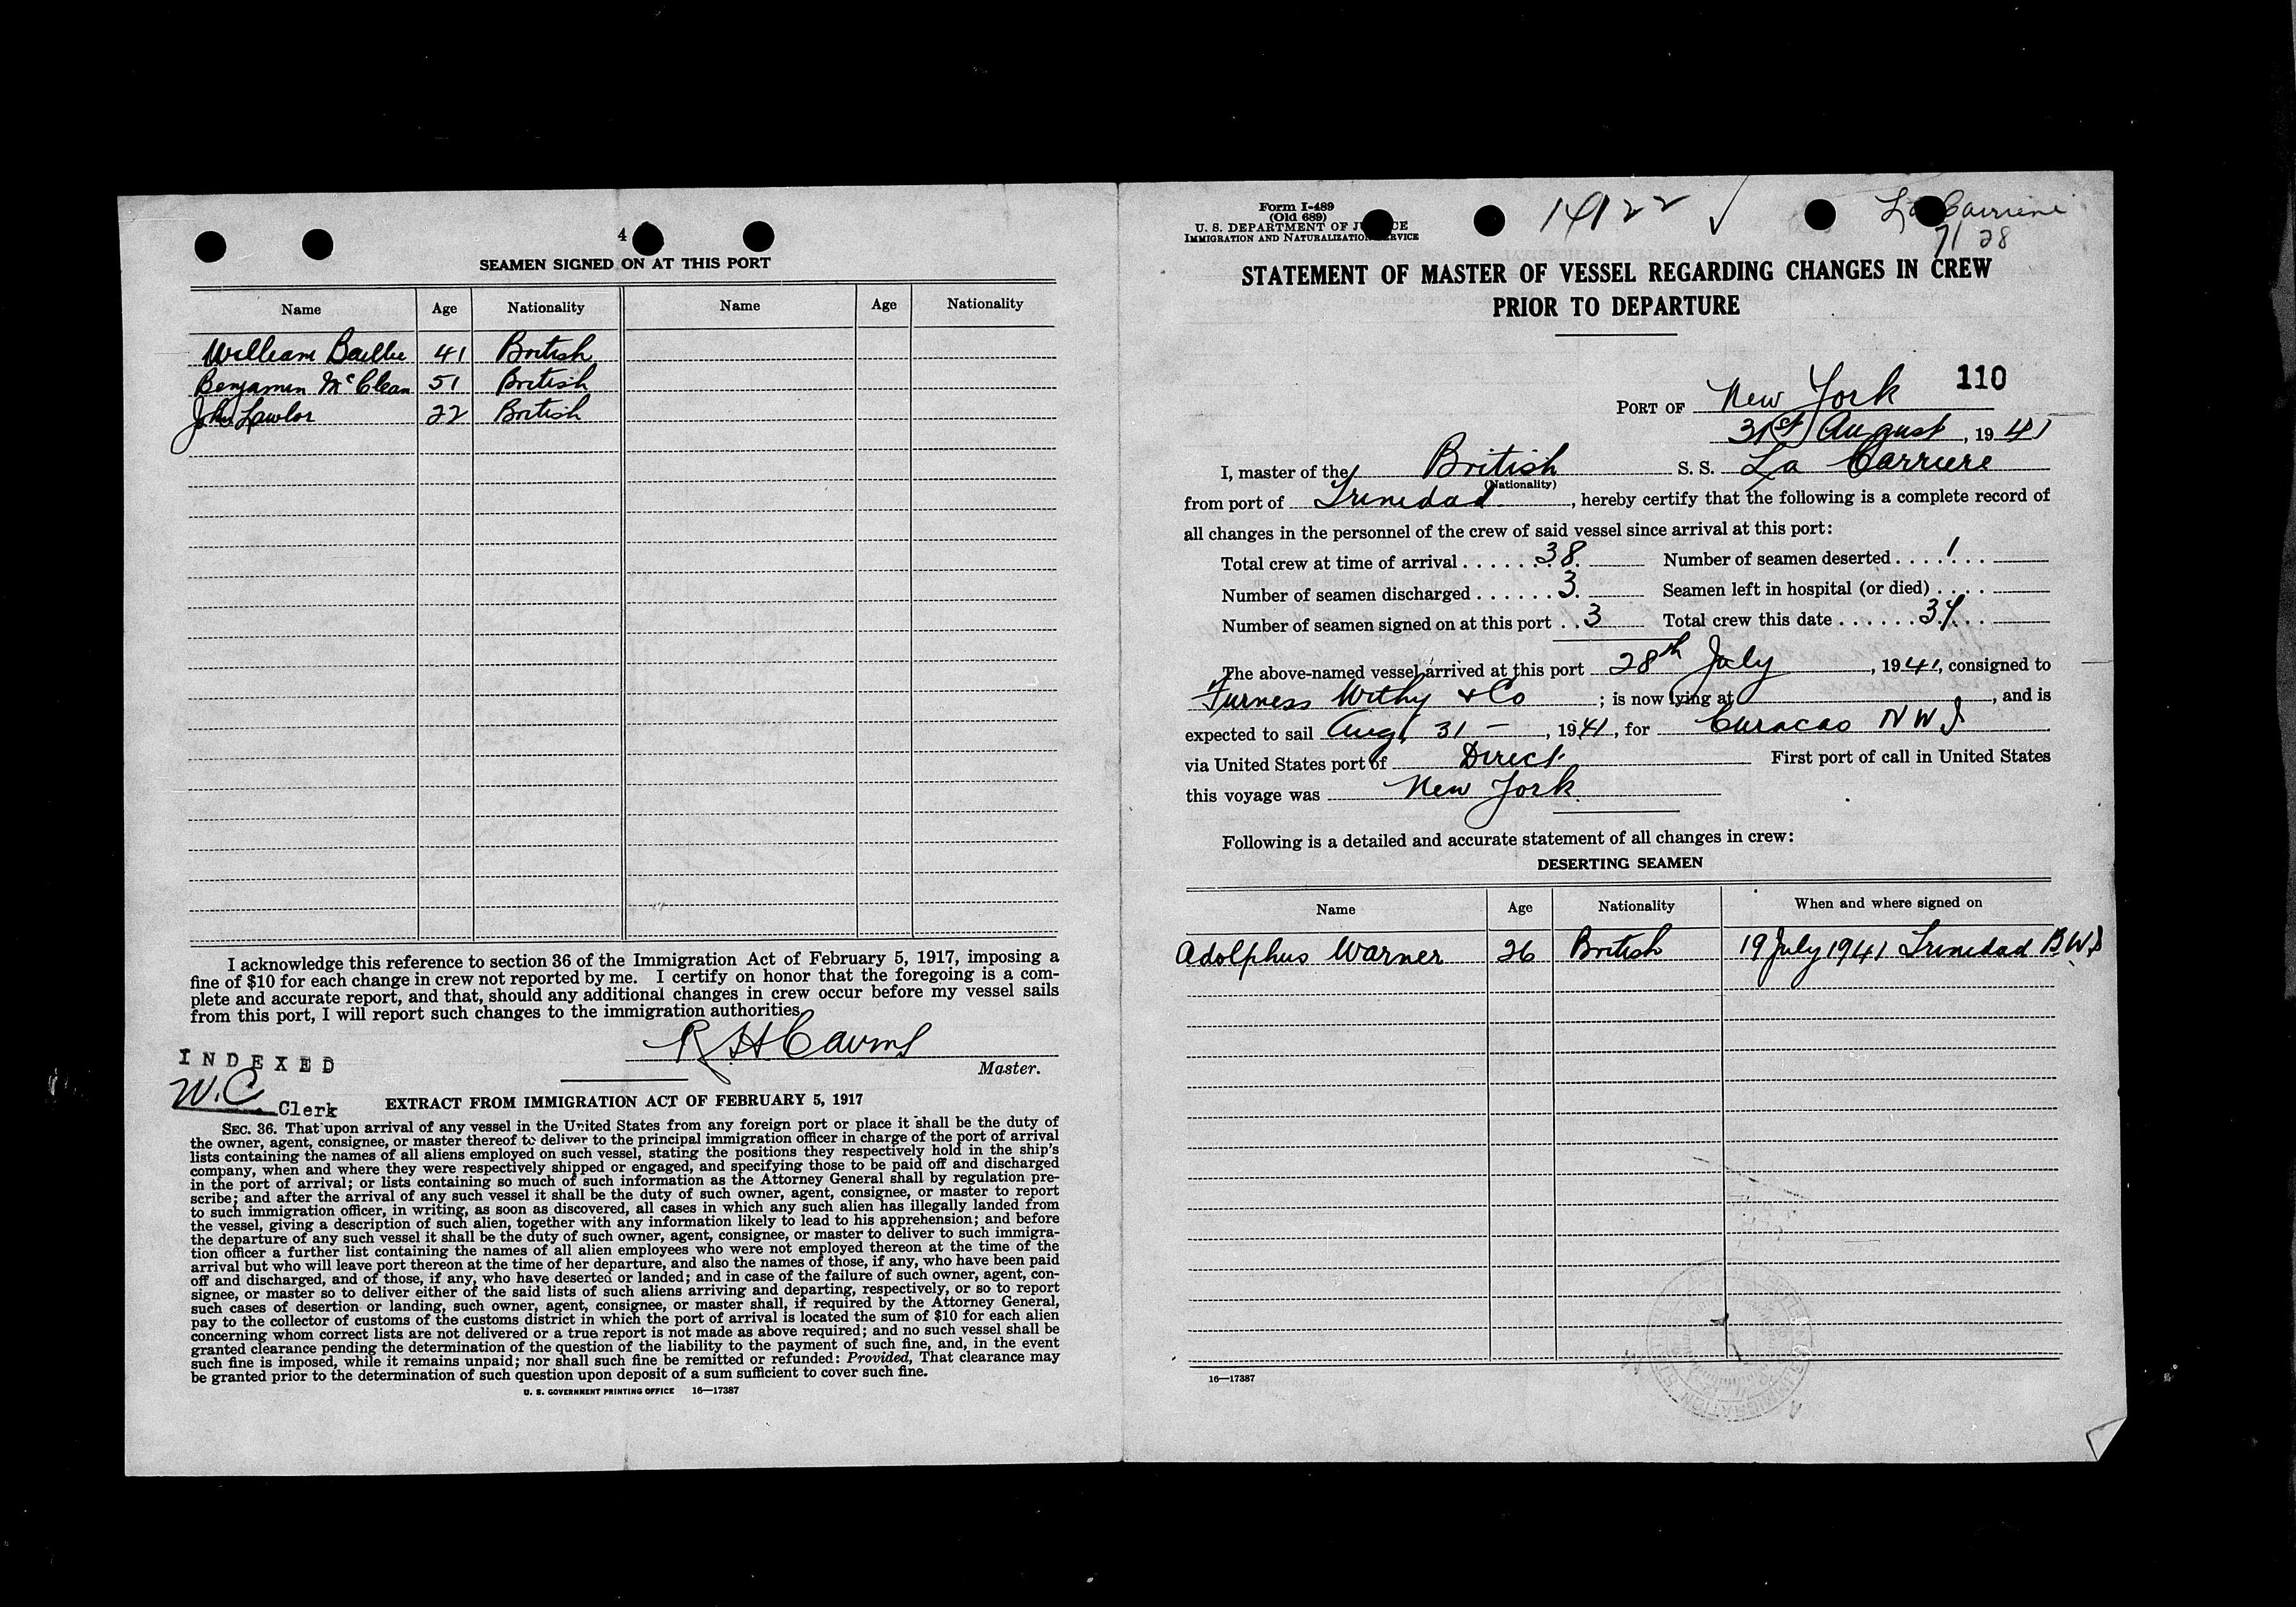 4
SEAMEN SIGNED ON AT THIS PORT
Name Age Nationality Name Age Nationality
William Baillie 41 British
Benjamin McClean 51 British
John Lawlor 22 British
I acknowledge this reference to section 36 of the Immigration Act of February 5, 1917, imposing a
fine of $10 for each change in crew not reported by me. I certify on honor that the foregoing is a com-
plete and accurate report, and that, should any additional changes in crew occur before my vessel sails
from this port, I will report such changes to the immigration authorities.
R H Cairns
Master.
INDEXED
W.C. Clerk
EXTRACT FROM IMMIGRATION ACT OF FEBRUARY 5, 1917
SEC. 36. That upon arrival of any vessel in the United States from any foreign port or place it shall be the duty of
the owner, agent, consignee, or master thereof to deliver to the principal immigration officer in charge of the port of arrival
lists containing the names of all aliens employed on such vessel, stating the positions they respectively hold in the ship's
company, when and where they were respectively shipped or engaged, and specifying those to be paid off and discharged
in the port of arrival; or lists containing so much of such information as the Attorney General shall by regulation pre-
scribe; and after the arrival of any such vessel it shall be the duty of such owner, agent, consignee, or master to report
to such immigration officer, in writing, as soon as discovered, all cases in which any such alien has illegally landed from
the vessel, giving a description of such alien, together with any information likely to lead to his apprehension; and before
the departure of any such vessel it shall be the duty of such owner, agent, consignee, or master to deliver to such immigra-
tion officer a further list containing the names of all alien employees who were not employed thereon at the time of the
arrival but who will leave port thereon at the time of her departure, and also the names of those, if any, who have been paid
off and discharged, and of those, if any, who have deserted or landed; and in case of the failure of such owner, agent, con-
signee, or master so to deliver either of the said lists of such aliens arriving and departing, respectively, or so to report
such cases of desertion or landing, such owner, agent, consignee, or master shall, if required by the Attorney General,
pay to the collector of customs of the customs district in which the port of arrival is located the sum of $10 for each alien
concerning whom correct lists are not delivered or a true report is not made as above required; and no such vessel shall be
granted clearance pending the determination of the question of the liability to the payment of such fine, and, in the event
such fine is imposed, while it remains unpaid; nor shall such fine be remitted or refunded: Provided, That clearance may
be granted prior to the determination of such question upon deposit of a sum sufficient to cover such fine.
U. S. GOVERNMENT PRINTING OFFICE 16—17387
Form I-489
(Old 689)
U. S. DEPARTMENT OF JUSTICE
IMMIGRATION AND NATURALIZATION SERVICE
14122 ✓
La Carriere
7/28
STATEMENT OF MASTER OF VESSEL REGARDING CHANGES IN CREW
PRIOR TO DEPARTURE
110
PORT OF New York
31st August, 1941
I, master of the British S. S. La Carriere
(Nationality)
from port of Trinidad, hereby certify that the following is a complete record of
all changes in the personnel of the crew of said vessel since arrival at this port:
Total crew at time of arrival . . . . . . 38. Number of seamen deserted . . . . 1 . . .
Number of seamen discharged . . . . . . 3. Seamen left in hospital (or died) . . . .
Number of seamen signed on at this port . . 3 Total crew this date . . . . . . 37. . .
The above-named vessel arrived at this port 28th July, 1941, consigned to
Furness Withy & Co ; is now lying at , and is
expected to sail Aug. 31 —, 1941, for Curacao NWI
via United States port of Direct First port of call in United States
this voyage was New York
Following is a detailed and accurate statement of all changes in crew:
DESERTING SEAMEN
Name Age Nationality When and where signed on
Adolphus Warner 26 British 19 July 1941 Trinidad BWI
16—17387